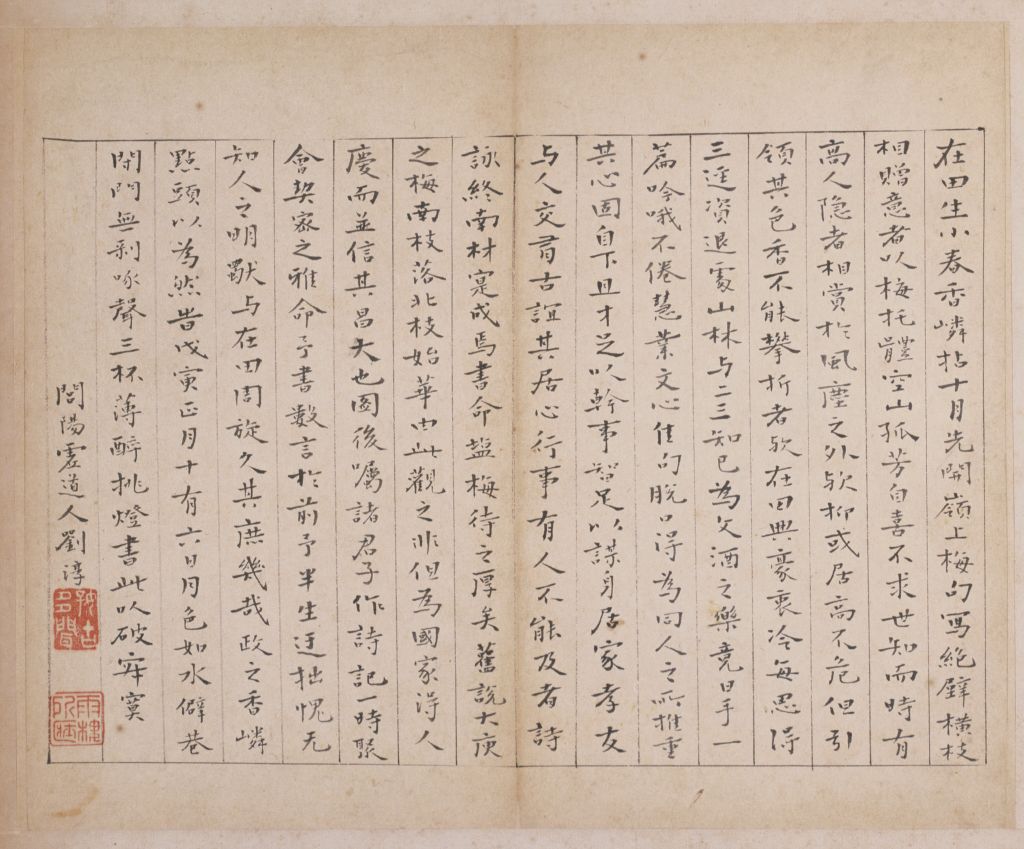 在田生小春香嶙拈十月先開嶺上梅句寫絶壁橫枝
相贈意者以梅托體空山孤芳自喜不求世知而時有
高人隐者相賞於風塵之外歟抑或居高不危但引
領其色香不能攀折者歟在田興豪衷冷每思得
三逕資退處山林与二三知已為文酒之樂竟日手一
篇吟哦不倦慧業文心佳句脫口得為同人之所推重
其心固自下且才足以幹事智足以謀身居家孝友
与人交肩古誼其居心行事有人不能及者詩
詠終南材寔成焉書命盐梅待之厚矣舊說大庾
之梅南枝落北枝始華由此觀之非但為國家得人
慶而並信其昌大也圖後囑諸君子作詩記一時聚
會契家之雅命予書數言於前予半生迂拙愧无
知人之明獸与在田周旋久其庶幾哉政之香嶙
點頭以為然昔戊寅正月十有六日月色如水僻巷
閉門無剥啄聲三杯薄醉挑燈書此以破寂寞
問陽雲道人劉淳